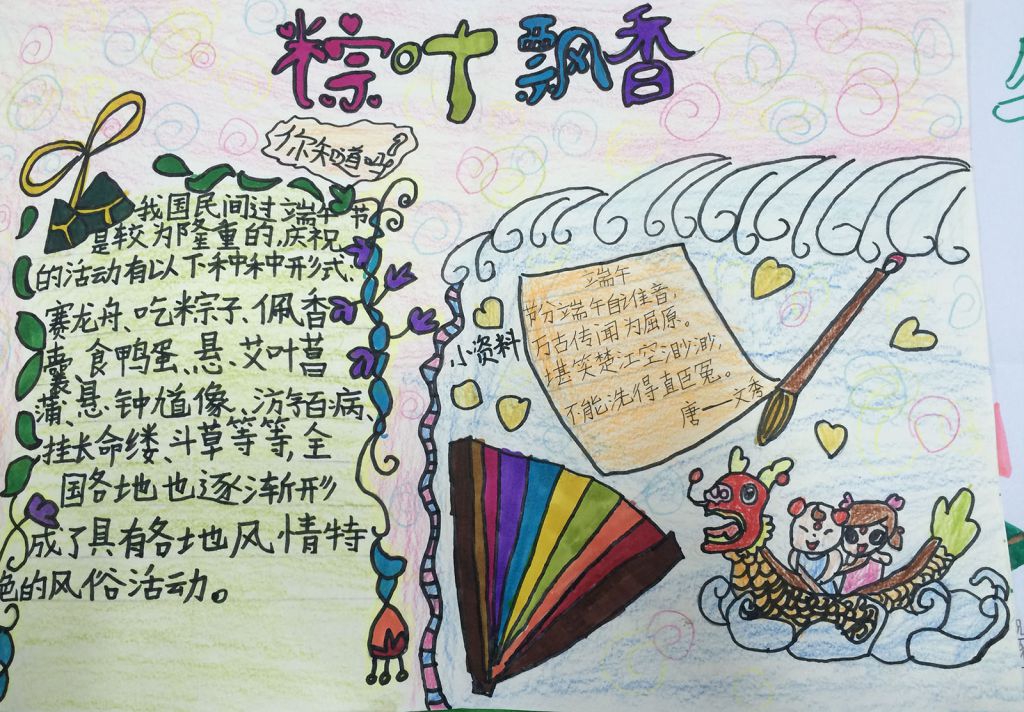 粽叶飘香
你知道吗?
我国民间过端午节
是较为隆重的,庆祝
的活动有以下种种形式:
赛龙舟、吃粽子、佩香
囊、食鸭蛋、悬、艾叶菖
蒲、悬、钟馗像、汸百病、
挂长命缕、斗草等等,全
国各地也逐渐形
成了具有各地风情特
色的风俗活动。
小资料
端午
节分端午自谁音,
万古传闻为屈原。
堪笑楚江空渺渺,
不能洗得直臣冤。
唐——文秀